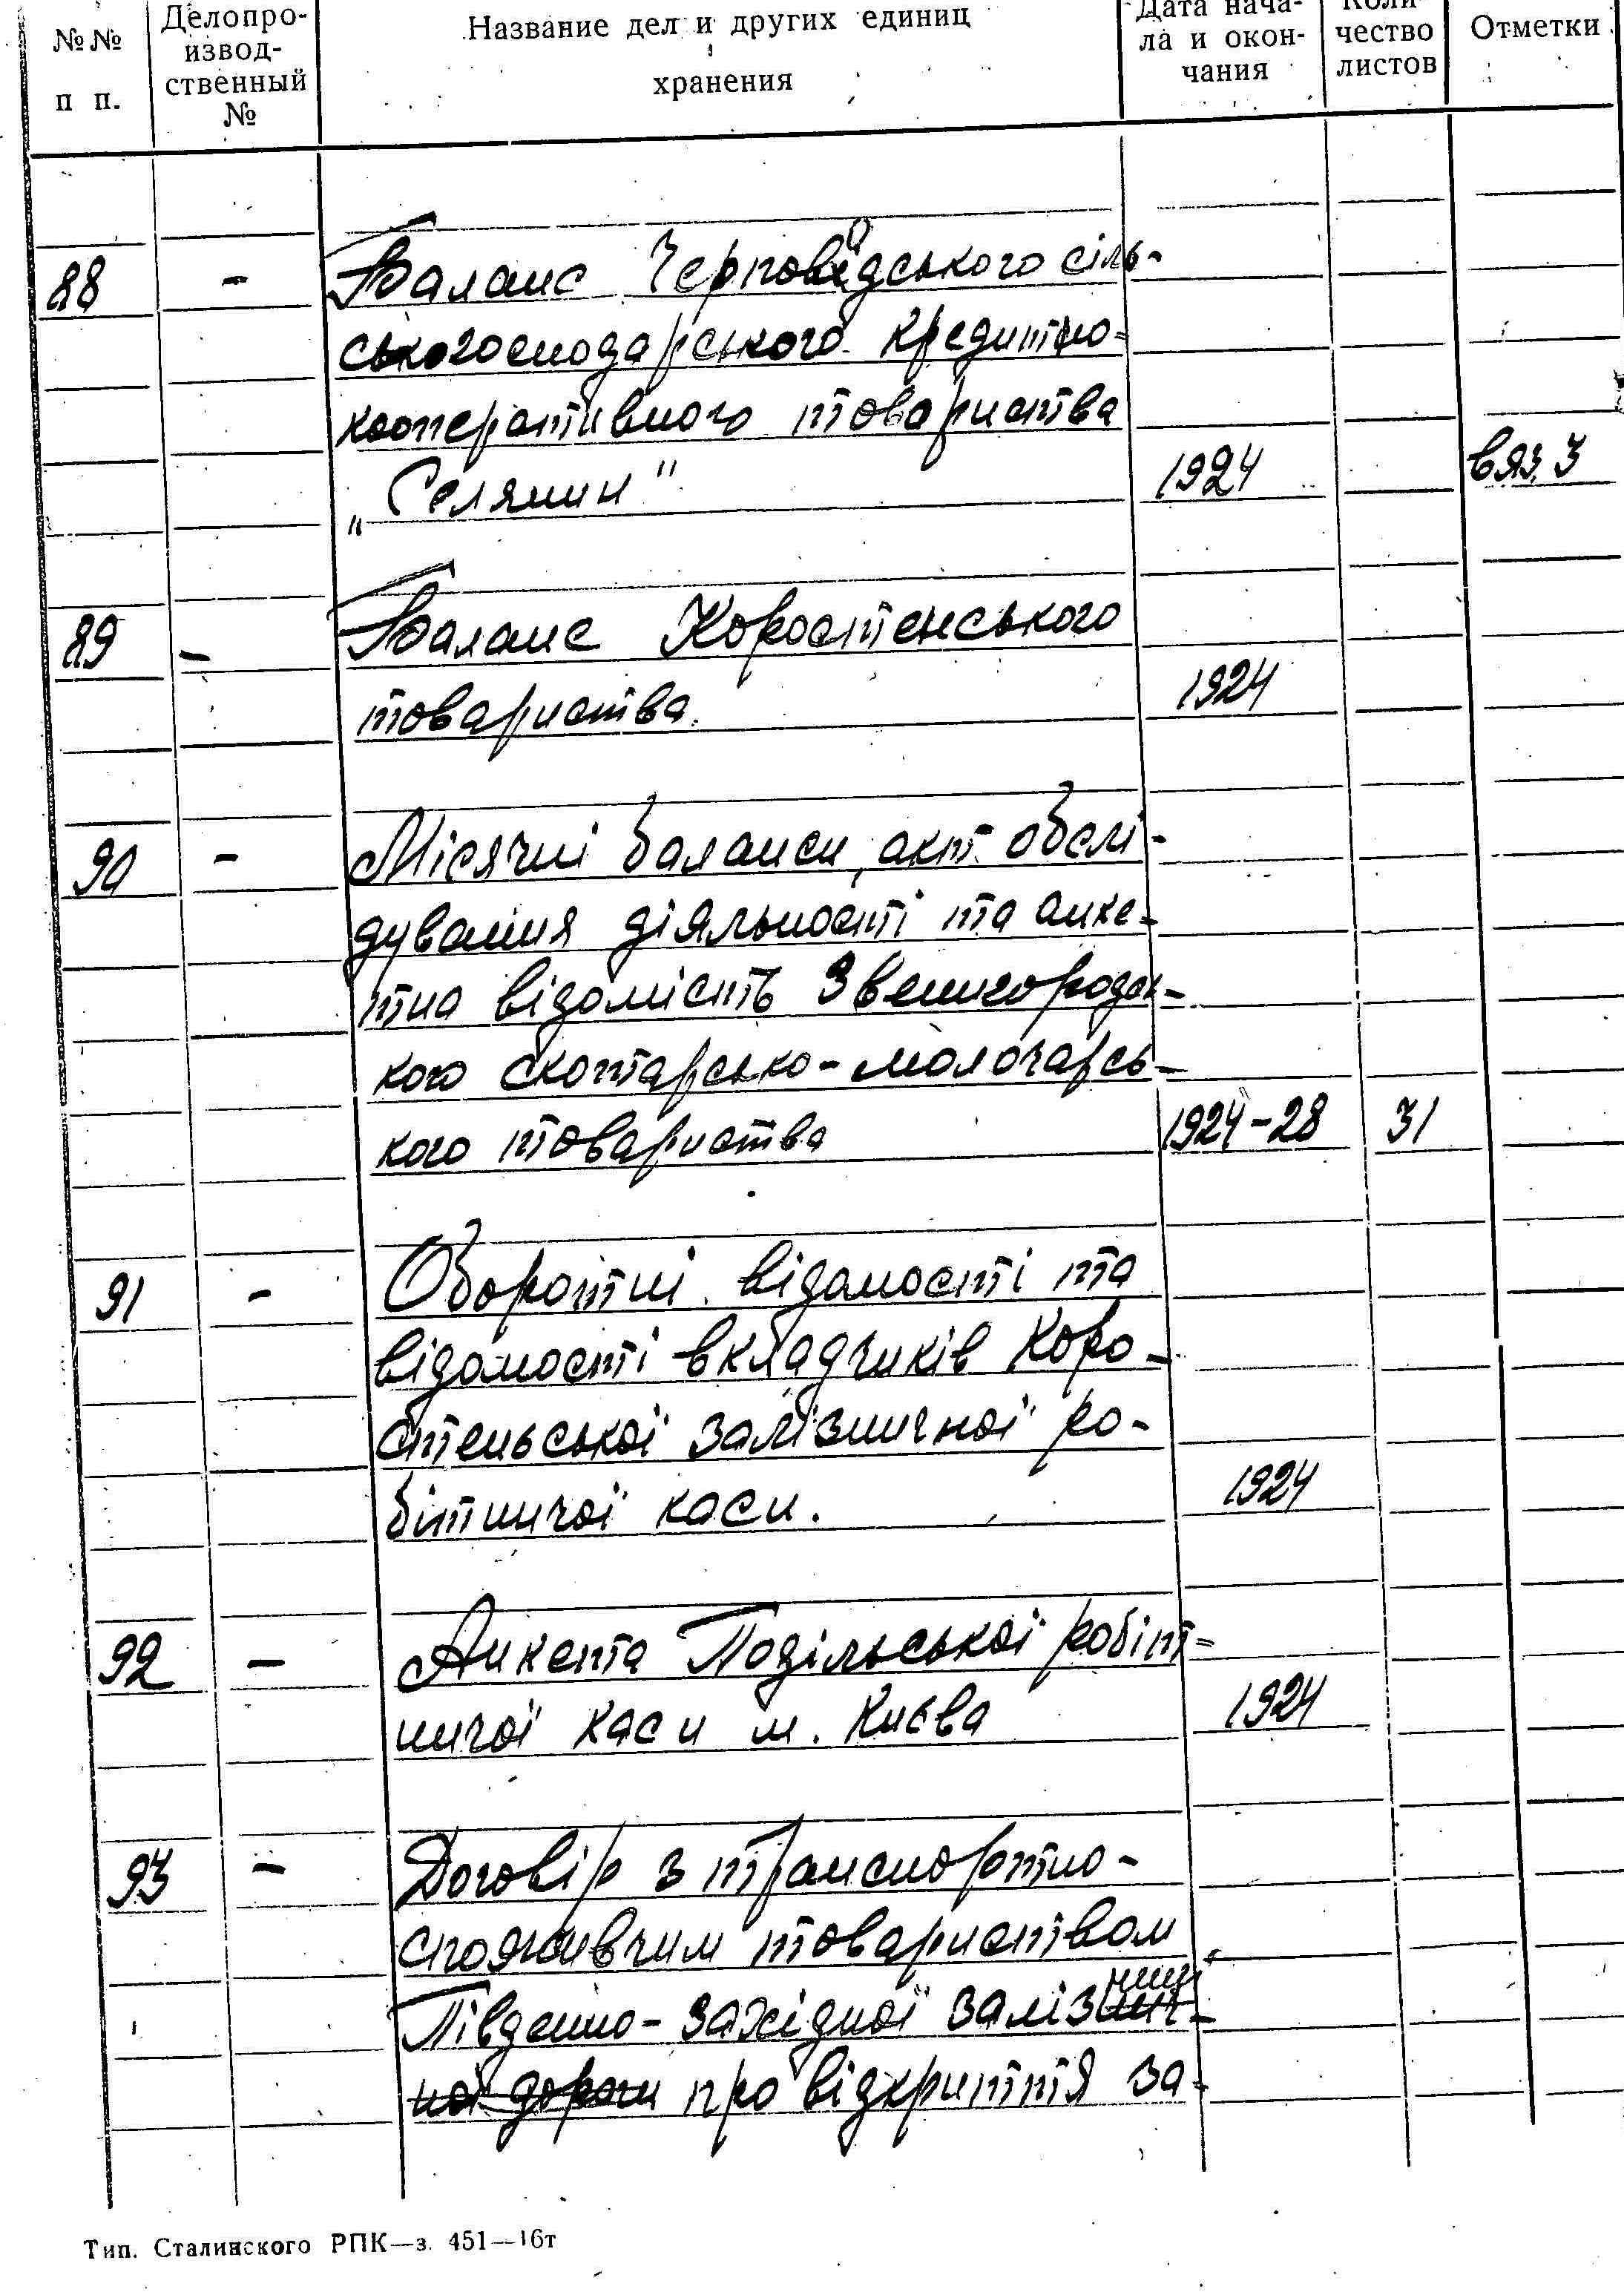 №№ п п.
Делопро-
извод-
ственный
№
Название дел и других единиц
хранения
Дата нача-
ла и окон-
чания
Коли-
чество
листов
Отметки
88 - Баланс сіль-
ськогосподарського кредитно-
кооперативного товариства
„Селянин" 1924 вяз. 3
89 - Баланс Коростенського
товариства. 1924
90 - Місячні баланси, акт обслі-
дування діяльності та анке-
тна відомість Звенигородсь-
кого скотарсько-молочарсь-
кого товариства 1924-28 31
91 - Оборотні відомості та
відомості вкладчиків Коро-
стенської залізничної ро-
бітничої каси. 1924
92 - Анкета Подільської робіт-
ничої каси м. Києва 1924
93 - Договір з транспортно-
споживчим товариством
Південно-західної залізниці
ної дороги про відкриття за-
Тип. Сталинского РПК—з. 451—16т